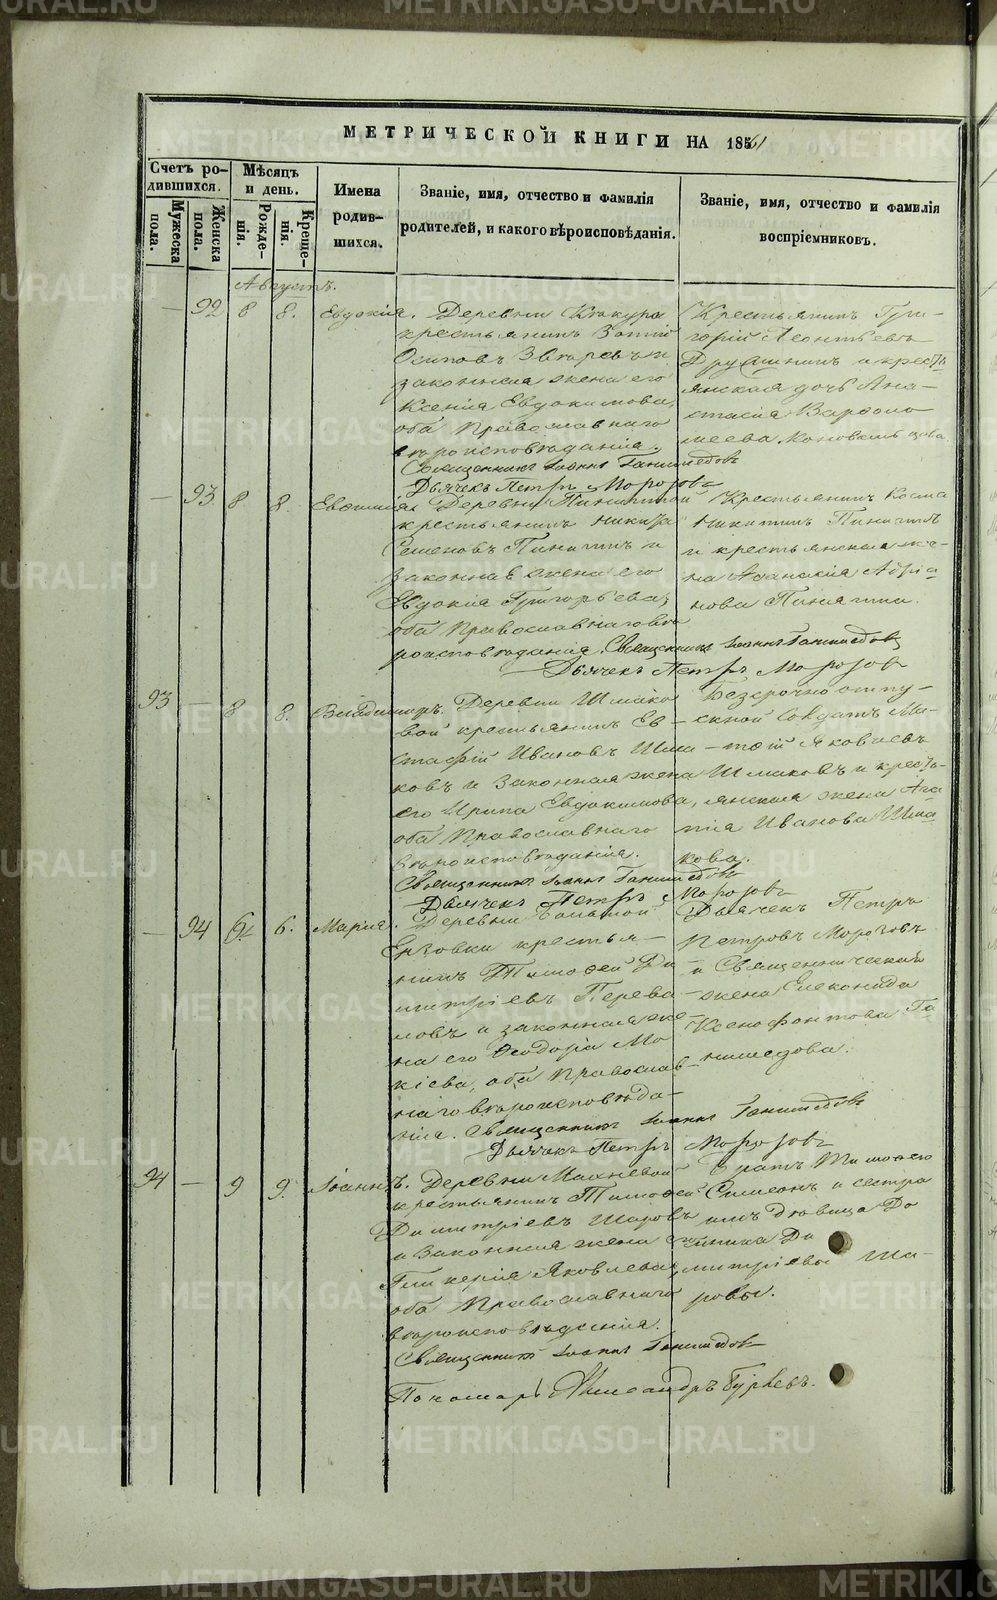 МЕТРИЧЕСКОЙ КНИГИ НА 1861
Счетъ родившихся.
Мужеска пола.
Женска пола.
Мѣсяцъ и день.
Рожденія.
Крещенія.
Имена родившихся.
Званіе, имя, отчество и фамилія
родителей, и какого вѣроисповѣданія.
Званіе, имя, отчество и фамилія
воспріемниковъ.
Августъ.
— 92 8 8. Евдокія.
Деревни
крестьянинъ Зотій
Осиповъ и
законная жена его
Ксенія Евдокимова,
оба православнаго
вѣроисповѣданія.
Священникъ Іоаннъ Ганимедовъ
Дьячекъ Петръ Морозовъ
Крестьянинъ Гри-
горій Леонтьевъ
и кресть
янская дочь Ана-
стасія Варѳоло
меева
— 93. 8 8.
Деревни
крестьянинъ Никита
Семеновъ и
законная жена его
Евдокія Григорьева,
оба Православнаго вѣ
роисповѣданія. Священникъ Іоаннъ Ганимедовъ
Дьячекъ Петръ Морозовъ
Крестьянинъ Косма
Никитинъ
и крестьянская же-
на Аѳанасія Адріа
нова
93 — 8 8. Владимиръ.
Деревни Шмако
вой крестьянинъ Ев-
стафій Ивановъ Шма-
ковъ и законная жена
его Ирина Евдокимова,
оба Православнаго
вѣроисповѣданія.
Священникъ Іоаннъ Ганимедовъ
Дьячекъ Петръ Морозовъ
Безсрочно отпу-
скной Солдатъ Ма-
тѳій Яковлевъ
Шмаковъ и кресть-
янская жена Ага
пія Иванова Шма
кова.
— 94 6. 6. Марія.
Деревни Большой
Ерзовки крестья-
нинъ Тимоѳей Ди
митріевъ Перева-
ловъ и законная же-
на его Ѳеодора Мо
кіева, оба Православ-
наго вѣроисповѣда-
нія. Священникъ Іоаннъ Ганимедовъ
Дьячекъ Петръ Морозовъ
Дьячекъ Петръ
Петровъ Морозовъ
и Священническая
жена
Ксенофонтова Га
нимедова.
94 — 9 9. Іоаннъ.
Деревни Махневой
крестьянинъ Тимоѳей
Димитріевъ Шаровъ
и Законная жена его
Гликерія Яковлева,
оба Православнаго
вѣроисповѣданія.
Священникъ Іоаннъ Ганимедовъ
Пономарь Александръ Гурьевъ.
Братъ Тимоѳею
Симеонъ и сестра
имъ дѣвица До
мника Ди
митріевы Ша-
ровы.
METRIKI.GASO-URAL.RU